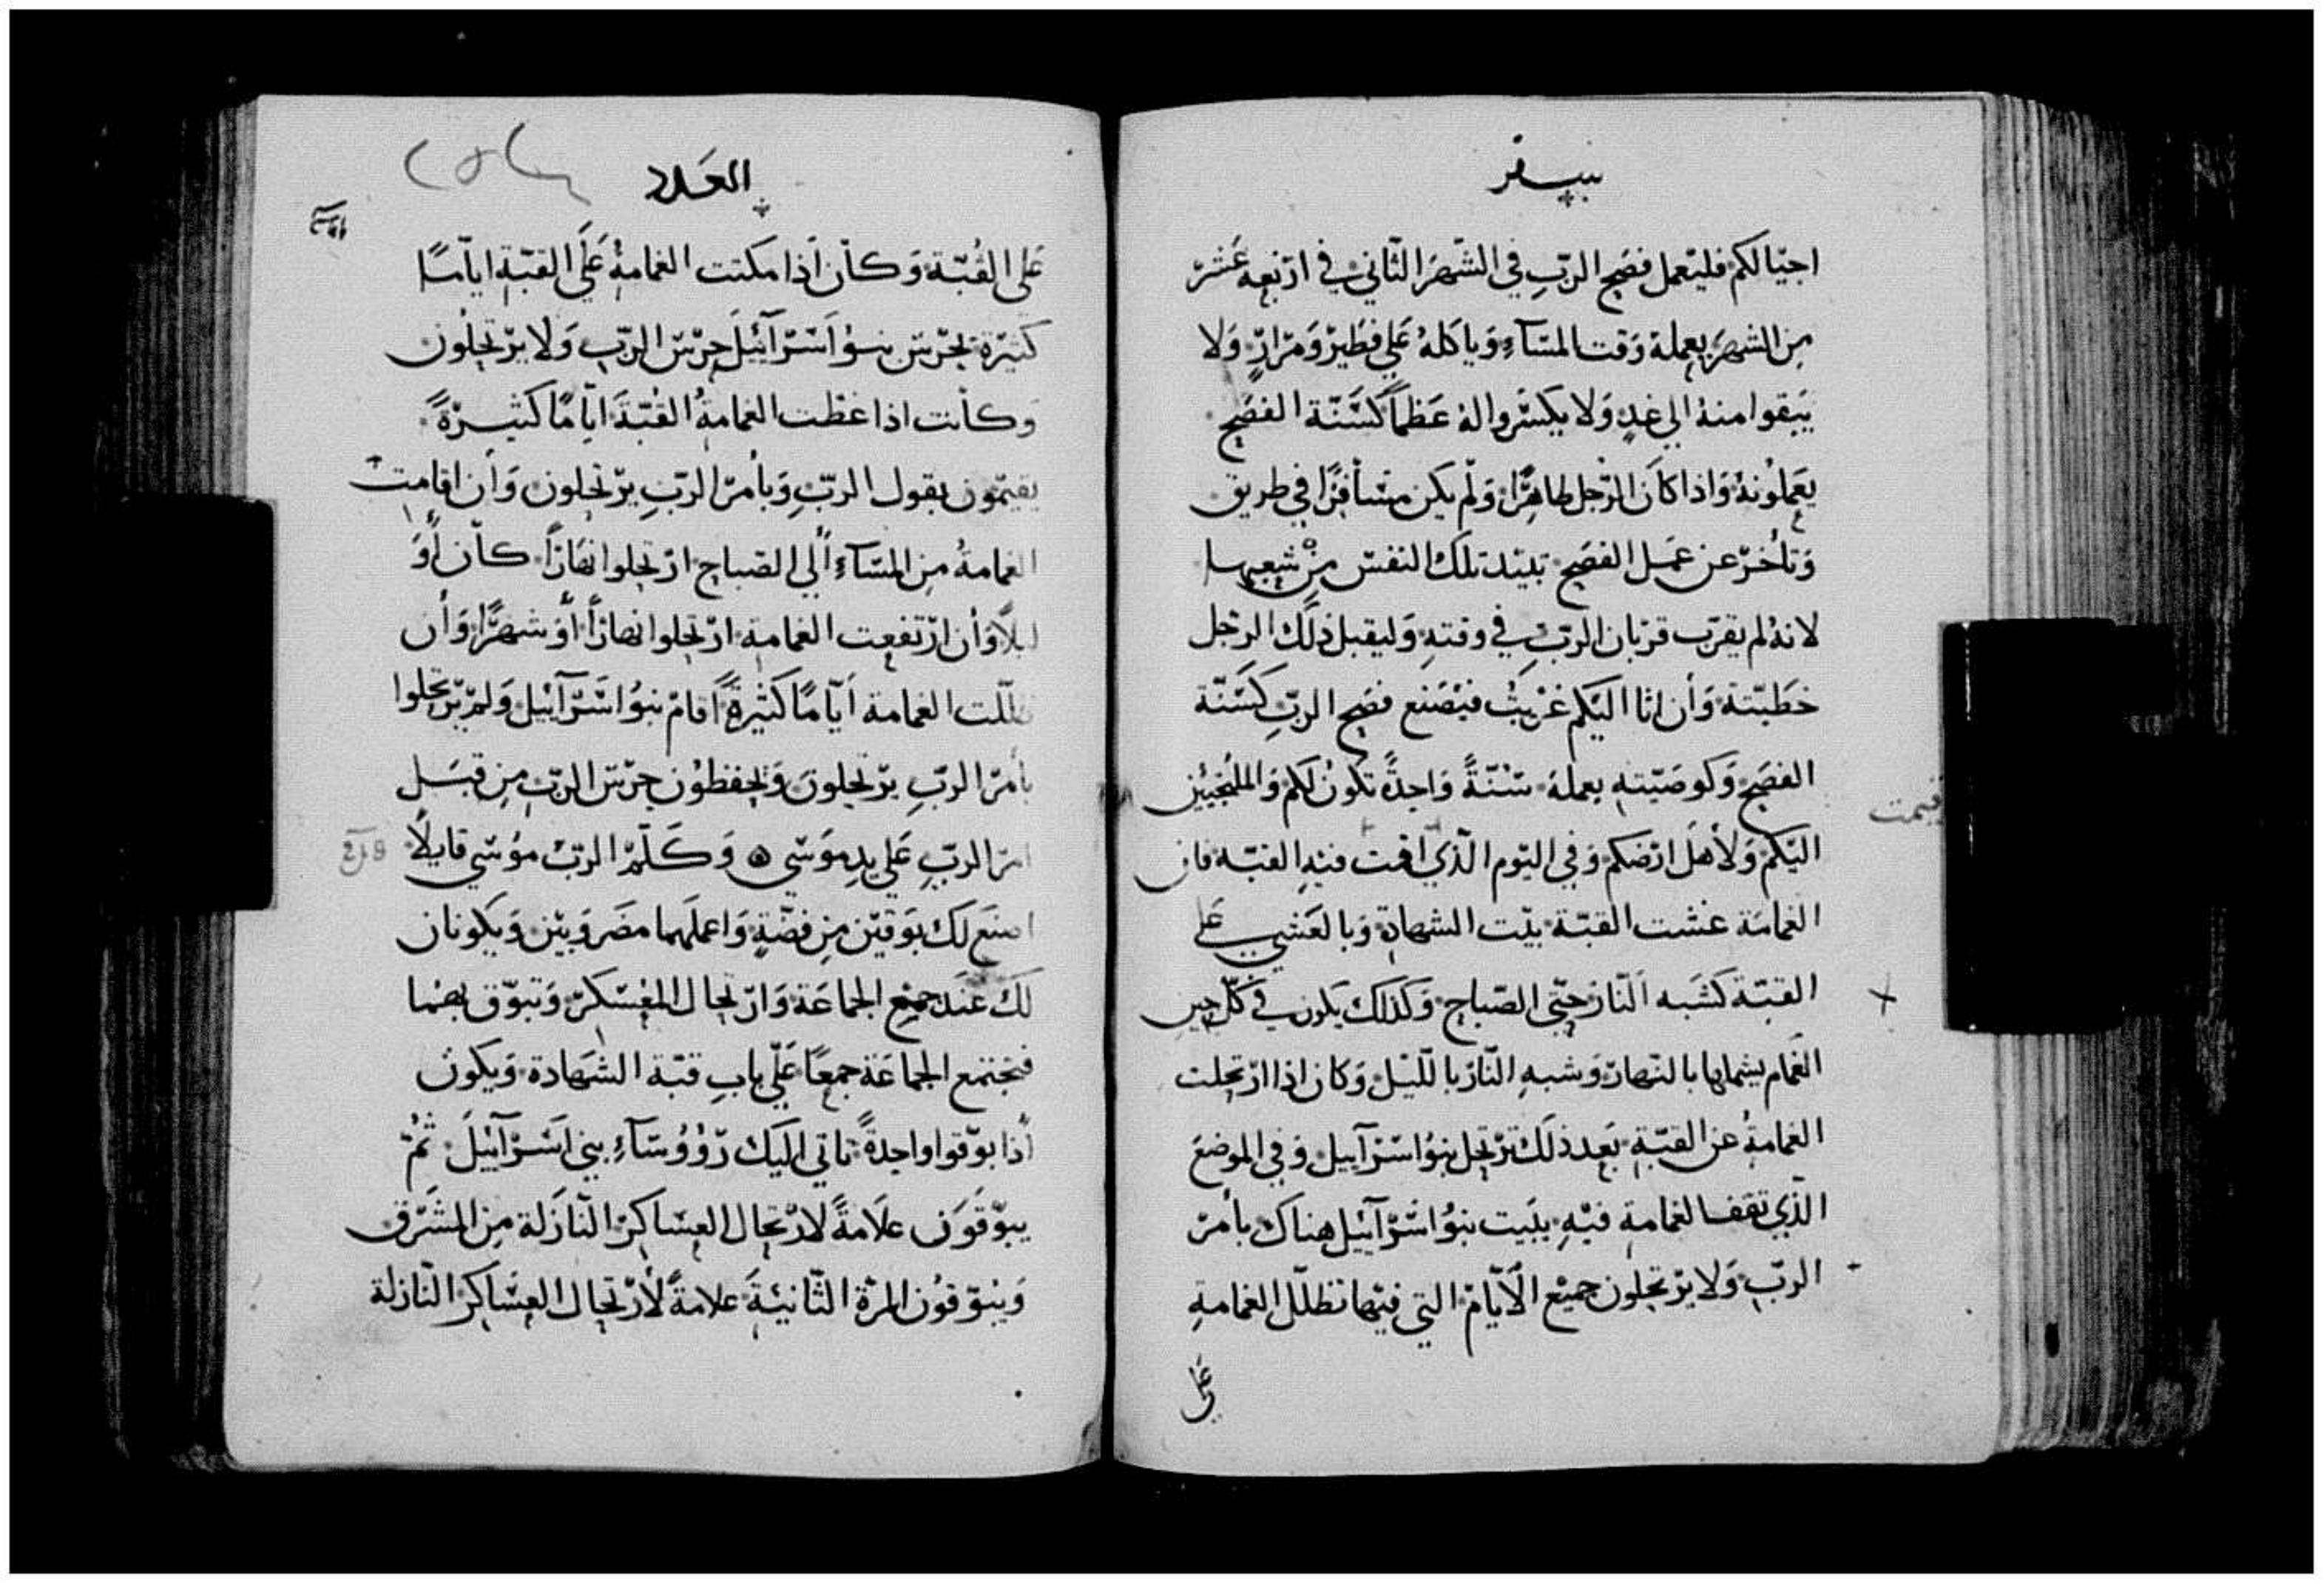 سفر
اجيالكم فليعمل فصح الربِ في الشهر الثاني في اربعه عَشر
مِن الشهر يعمله وَقت المسَآءِ وَياكله عَلي فطير وَمرارٍ وَلا
يبقوا منهُ الي غدٍ وَلا يكسروا لهُ عَظماً كسَنّة الفصَح
يعَملونهُ وَاذا كانَ الرّجل طاهرًا وَلم يكن مسَافرًا في طريق
وَتأخر عن عَمل الفصَح تبيد تلك النفس مِن شعبها
لانهُ لم يقرّب قربان الربِّ في وقتهِ وَليقبل ذلك الرجل
خطيّتهُ وَأن اتا اليكم غريبُ فيصَنع فصَح الربِّ كسَنّة
الفصَح وَكوصَيّتهِ يعمله سُنّةً وَاحدةً تكونُ لكم وَالملتجئين
اليكم وَلأهل ارضكم وَفي اليَوم الّذي اقمت فيهِ القبّه فان
الغمامَة غشت القبّة بيت الشهادة وَبالعَشي علي
القبّة كشَبه النار حتّي الصّباح وَكذلك يكون في كلّ حين
الغمام يشملها بالنهار وَشبهِ النّار باللّيل وَكان اذا ارتحلت
الغمامةُ عن القبّةِ بَعد ذلك ترتحل بنوُ اسرآييل وَفي الموضع
الّذي تقف الغمامة فيهِ يبَيت بنوُ اسرآييل هناك بأمر
الربّ وَلا يرتحلون جميع الأيّام التي فيها تظلّل الغمامةِ
عَلي
العَدد
عَلي القُبّة وَكان أذا مكثت الغمامةُ عَلَي القبّةِ اياّمًا
كثيرة يحرس بنوُ اسَرآئيل حرس الربّ وَلا يرتحلون
وَكأنت اذا غطّت الغمامةُ القُبّةَ ايّامًا كثيرةً
يقيمون بقول الربِّ وَبأمر الربِ يرتحلون وَأن اقامت
الغمامةُ مِن المسَآءِ ألي الصَباح ارتحلوا نهارًا كان أوَ
ليلاً وَأن ارتفعت الغمامة ارتحلوا نهارًا أوَ شهرًا وَأن
ظللت الغمامة أيّامًا كثيرةً أقامَ بنوُ اسَرآييل وَلم يرتحلوا
بأمر الربِّ يرتحلونَ وَيحفظوُن حرس الربِّ مِن قبَل
امر الربِّ عَلي يدِ موَسي ۞ وَكَلّم الربّ موُسي قايلاً
اصنَع لكَ بوَقين مِن فضّةٍ وَاعملهما مضَروَبين وَيكونان
لكَ عندَ جميع الجماعَة وَارتحال المعسَكر وَتبوّق بهما
فتجتمع الجماعَة جمعًا عَلَي بابِ قبّة الشهَادة وَيكون
أذا بوّقوا واحدةً تاتي اليكَ رؤوُسَآءِ بني اسَرآييلَ ثمُّ
يبوّقوَن علاَمةً لارتحال العسَاكر النّازَلة مِن المشَرق
وَيبُوّقوُن المرّة الثّانيَةَ علامةً لأرتحال العسَاكر النّازلة